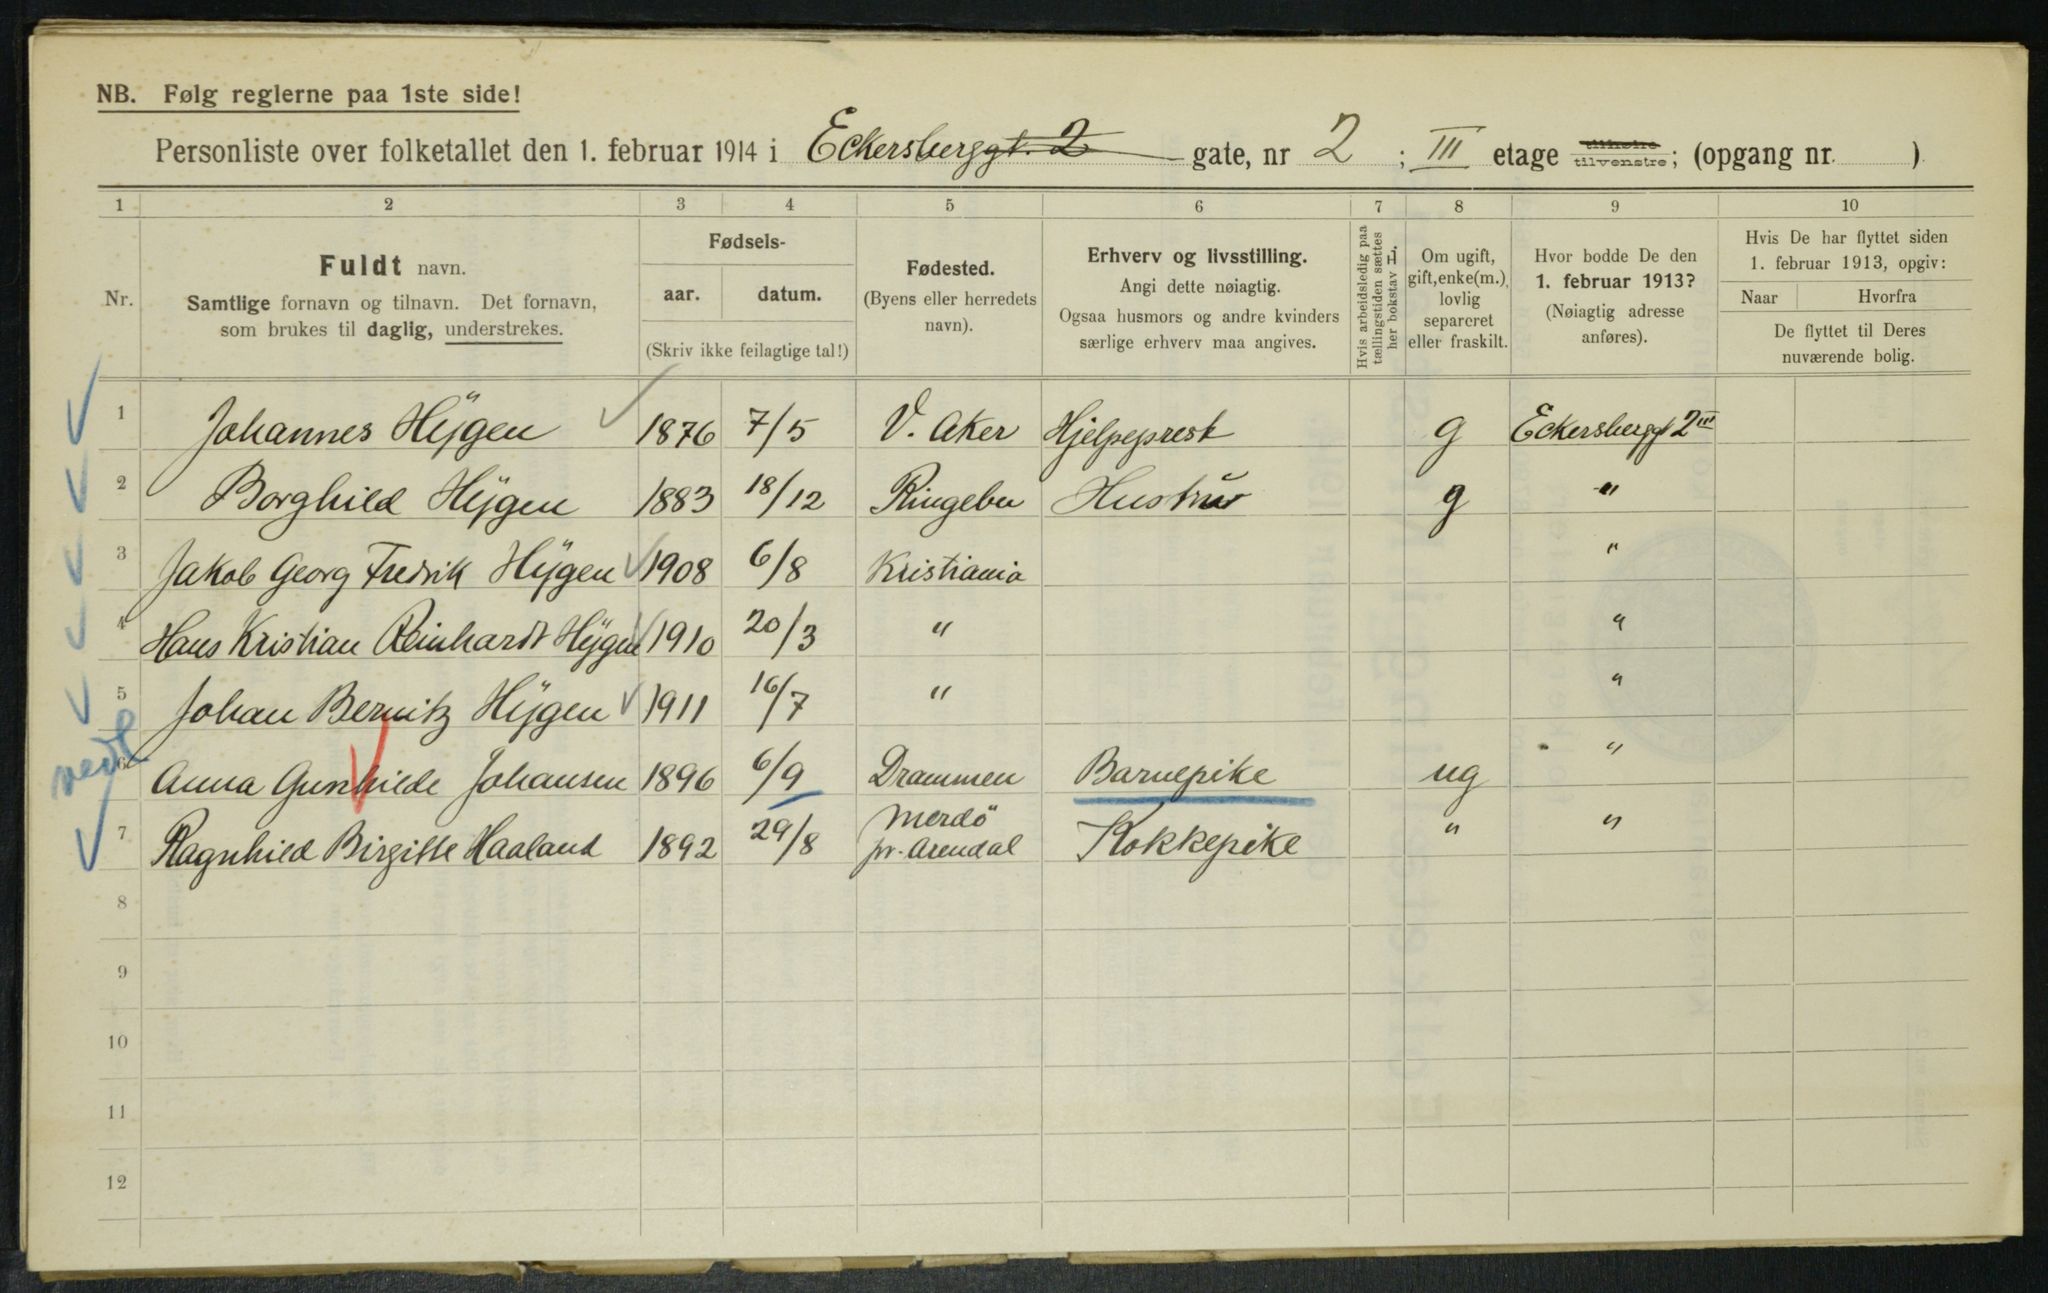 NB. Følg reglerne paa 1ste side!
Personliste over folketallet den 1. februar 1914 i Eckersberggt. 2 gate, nr 2 ; III etage tilhøire tilvenstre; (opgang nr. )
1 2 3 4 5 6 7 8 9 10
Nr.
Fuldt navn.
Samtlige fornavn og tilnavn. Det fornavn,
som brukes til daglig, understrekes.
Fødsels-
aar. datum.
(Skriv ikke feilagtige tal!)
Fødested.
(Byens eller herredets
navn).
Erhverv og livsstilling.
Angi dette nøiagtig.
Ogsaa husmors og andre kvinders
særlige erhverv maa angives.
Hvis arbeidsledig paa
tællingstiden sættes
her bokstav L.
Om ugift,
gift, enke(m.),
lovlig
separeret
eller fraskilt.
Hvor bodde De den
1. februar 1913?
(Nøiagtig adresse
anføres).
Hvis De har flyttet siden
1. februar 1913, opgiv:
Naar Hvorfra
De flyttet til Deres
nuværende bolig.
1 Johannes Hÿgen 1876 7/5 V. Aker Hjelpeprest g Eckersberggt 2 III
2 Borghild Hÿgen 1883 18/12 Ringebu Hustru g "
3 Jakob Georg Fredrik Hÿgen 1908 6/8 Kristiania "
4 Hans Kristian Reinhardt Hÿgen 1910 20/3 " "
5 Johan Bernitz Hÿgen 1911 16/7 " "
6 Anna Gunhilde Johansen 1896 6/9 Drammen Barnepike ug "
7 Ragnhild Birgitte Haaland 1892 29/8 Merdö pr. Arendal Kokkepike " "
8
9
10
11
12